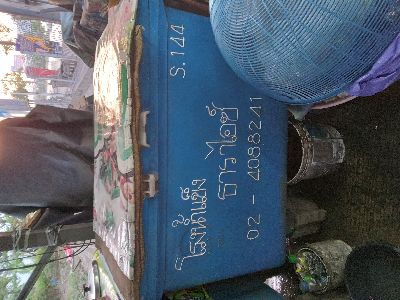 S.144
โรงน้ำแข็ง
ธาราไอซ์
02 - 4088241